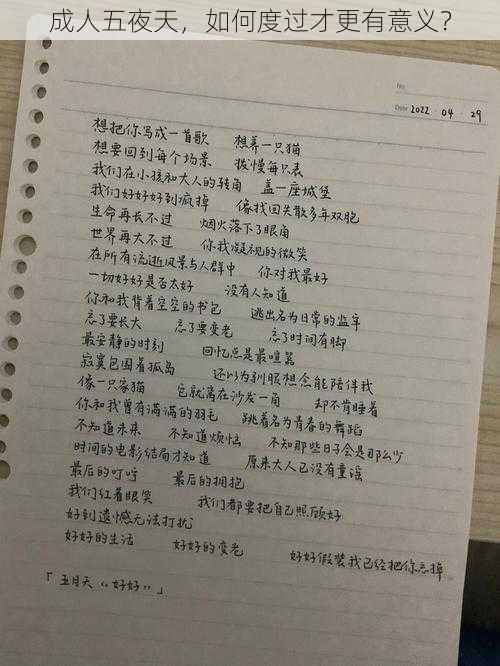 成人五夜天，如何度过才更有意义？
No.
Date 2022 . 04 . 29
想把你写成一首歌 想养一只猫
想要回到每个场景 拨慢每只表
我们在小孩和大人的转角 盖一座城堡
我们好好好到疯掉 像找回失散多年双胞
生命再长不过 烟火落下了眼角
世界再大不过 你我凝视的微笑
在所有流逝风景与人群中 你对我最好
一切好好是否太好 没有人知道
你和我背着空空的书包 逃出名为日常的监牢
忘了要长大 忘了要变老 忘了时间有脚
最安静的时刻 回忆总是最喧嚣
寂寞包围着孤岛 还以为驯服想念能陪伴我
像一只家猫 它就窝在沙发一角 却不肯睡着
你和我曾有满满的羽毛 跳着名为青春的舞蹈
不知道未来 不知道烦恼 不知那些日子会是那么少
时间的电影结局才知道 原来大人已没有童谣
最后的叮咛 最后的拥抱
我们红着眼笑 我们都要把自己照顾好
好到遗憾无法打扰
好好的生活 好好的变老 好好假装我已经把你忘掉
「五月天《好好》」